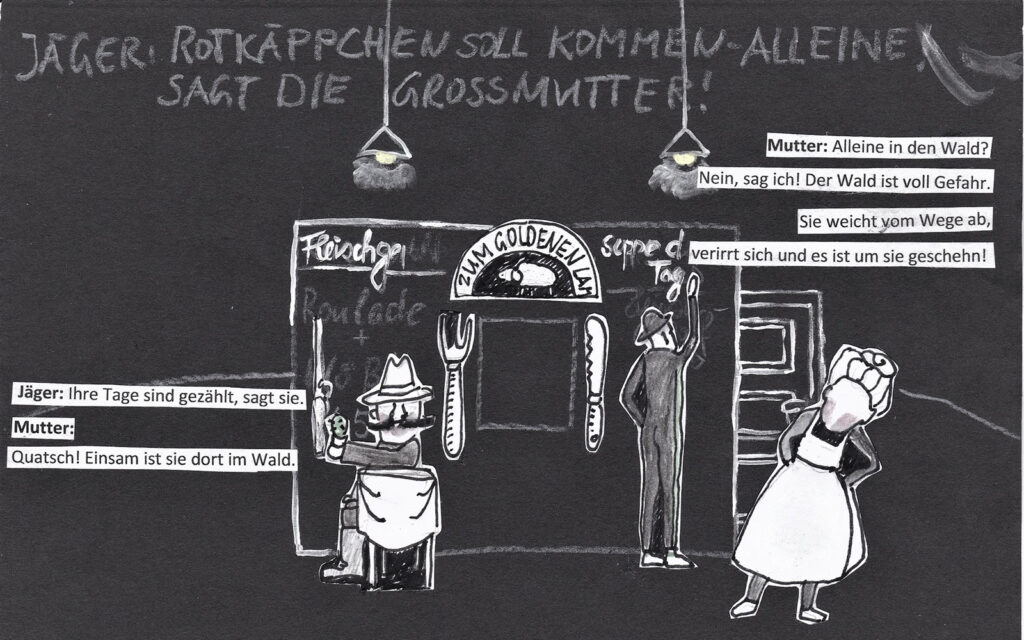 JÄGER: ROTKÄPPCHEN SOLL KOMMEN - ALLEINE,
SAGT DIE GROSSMUTTER!
Mutter: Alleine in den Wald?
Nein, sag ich! Der Wald ist voll Gefahr.
Sie weicht vom Wege ab,
verirrt sich und es ist um sie geschehn!
Fleischger
ZUM GOLDENEN LAM
suppe d
Tag
Roulade
+
Jäger: Ihre Tage sind gezählt, sagt sie.
Mutter:
Quatsch! Einsam ist sie dort im Wald.